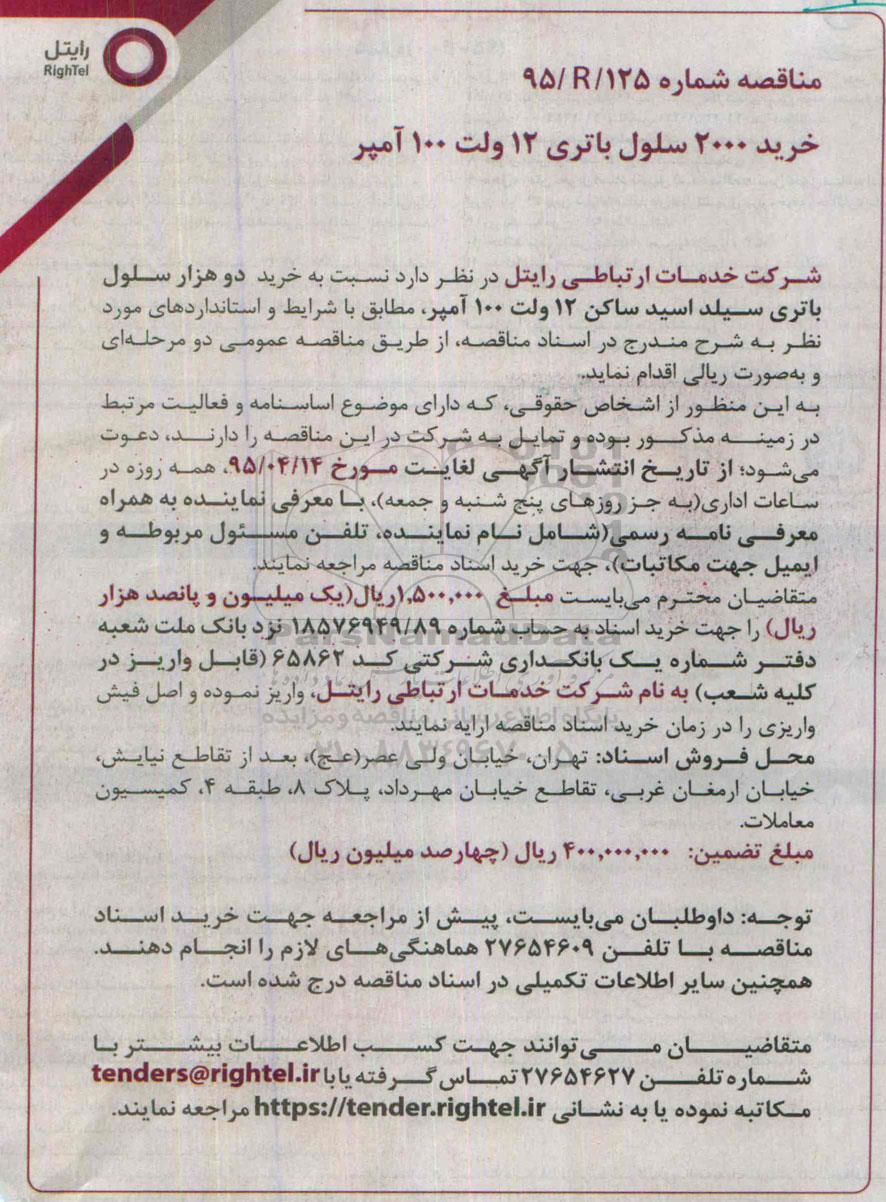 رایتل
RighTel
مناقصه شماره ۹۵/R/۱۲۵
خرید ۲۰۰۰ سلول باتری ۱۲ ولت ۱۰۰ آمپر
شرکت خدمات ارتباطی رایتل در نظر دارد نسبت به خرید دو هزار سلول
باتری سیلد اسید ساکن ۱۲ ولت ۱۰۰ آمپر، مطابق با شرایط و استانداردهای مورد
نظر به شرح مندرج در اسناد مناقصه، از طریق مناقصه عمومی دو مرحله‌ای
و به‌صورت ریالی اقدام نماید.
به این منظور از اشخاص حقوقی، که دارای موضوع اساسنامه و فعالیت مرتبط
در زمینه مذکور بوده و تمایل به شرکت در این مناقصه را دارند، دعوت
می‌شود؛ از تاریخ انتشار آگهی لغایت مورخ ۹۵/۰۴/۱۴، همه روزه در
ساعات اداری(به جز روزهای پنج شنبه و جمعه)، با معرفی نماینده به همراه
معرفی نامه رسمی(شامل نام نماینده، تلفن مسئول مربوطه و
ایمیل جهت مکاتبات)، جهت خرید اسناد مناقصه مراجعه نمایند.
متقاضیان محترم می‌بایست مبلغ ۱,۵۰۰,۰۰۰ریال(یک میلیون و پانصد هزار
ریال) را جهت خرید اسناد به حساب شماره ۱۸۵۷۶۹۴۹/۸۹ نزد بانک ملت شعبه
دفتر شماره یک بانکداری شرکتی کد ۶۵۸۶۲ (قابل واریز در
کلیه شعب) به نام شرکت خدمات ارتباطی رایتل، واریز نموده و اصل فیش
واریزی را در زمان خرید اسناد مناقصه ارایه نمایند.
محل فروش اسناد: تهران، خیابان ولی عصر(عج)، بعد از تقاطع نیایش،
خیابان ارمغان غربی، تقاطع خیابان مهرداد، پلاک ۸، طبقه ۴، کمیسیون
معاملات.
مبلغ تضمین: ۴۰۰,۰۰۰,۰۰۰ ریال (چهارصد میلیون ریال)
توجه: داوطلبان می‌بایست، پیش از مراجعه جهت خرید اسناد
مناقصه با تلفن ۲۷۶۵۴۶۰۹ هماهنگی‌های لازم را انجام دهند.
همچنین سایر اطلاعات تکمیلی در اسناد مناقصه درج شده است.
متقاضیان می‌توانند جهت کسب اطلاعات بیشتر با
شماره تلفن ۲۷۶۵۴۶۲۷ تماس گرفته یا با tenders@rightel.ir
مکاتبه نموده یا به نشانی https://tender.rightel.ir مراجعه نمایند.
ParsNamadData
پایگاه اطلاع رسانی مناقصه و مزایده